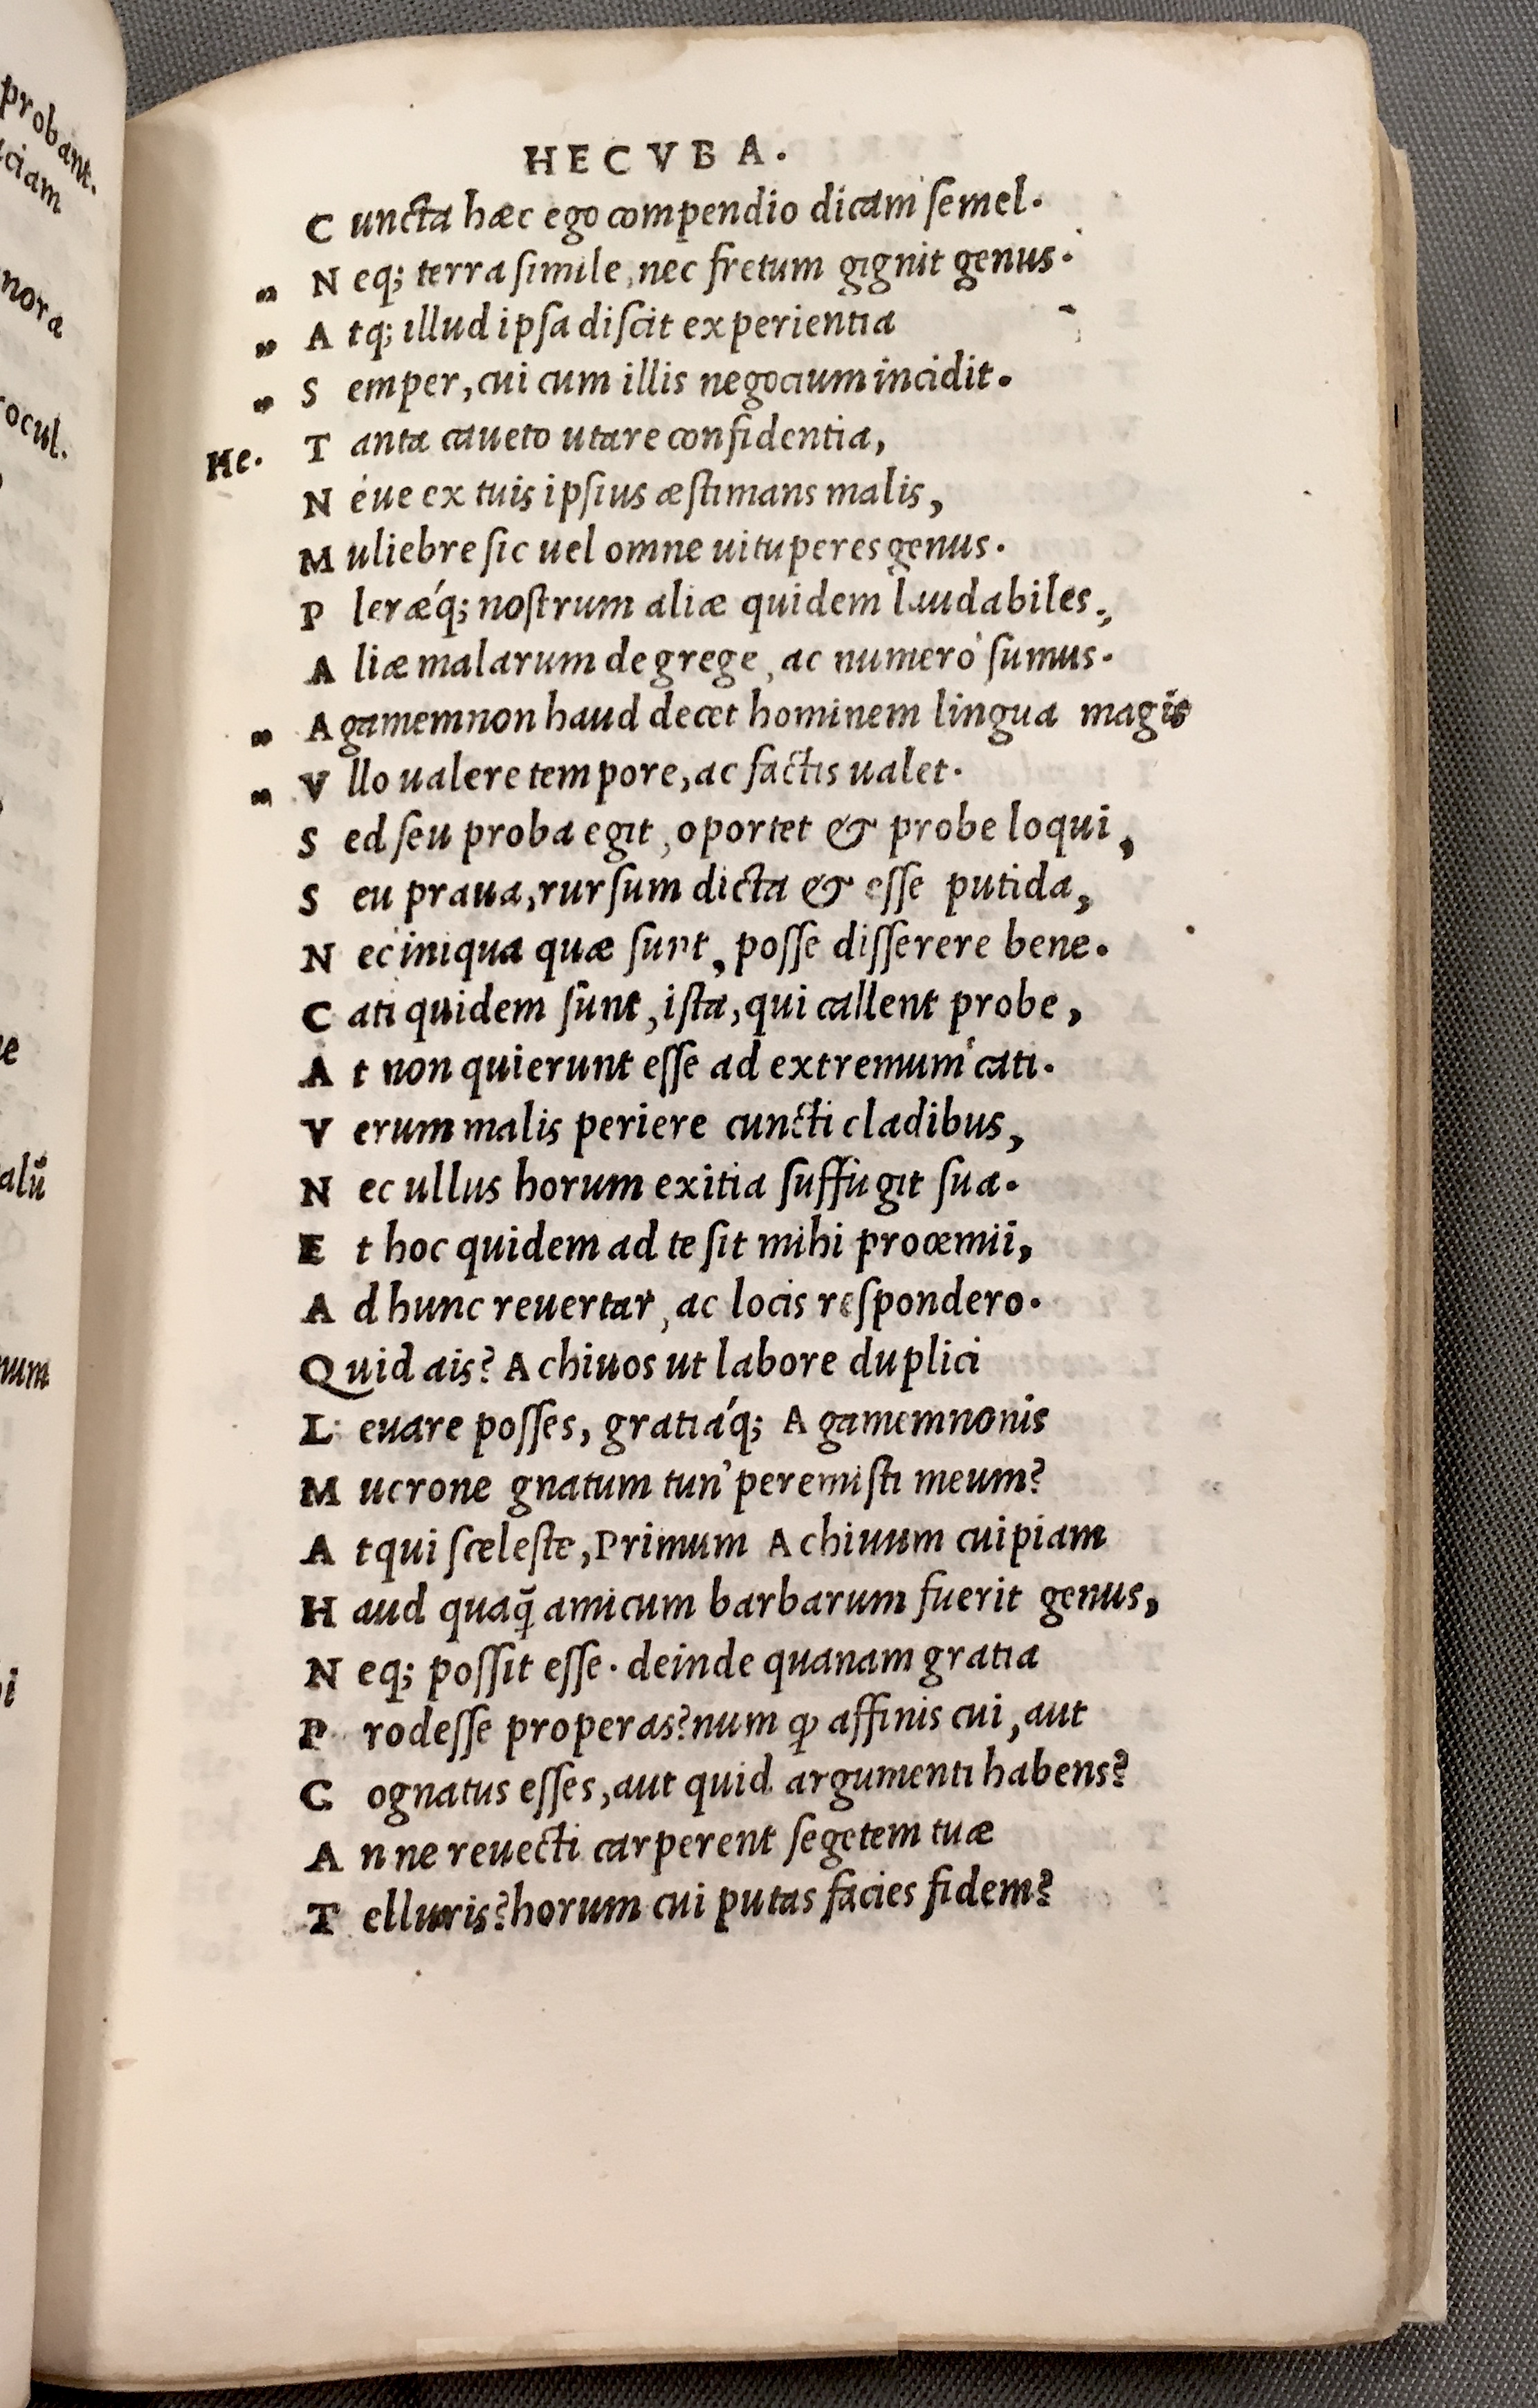 probant.
ciam
nora
ocul.
e
alū
num
i
HECVBA.
C uncta hæc ego compendio dicam semel.
„ N eq; terra simile, nec fretum gignit genus.
„ A tq; illud ipsa discit experientia
„ S emper, cui cum illis negocium incidit.
He. T anta caueto utare confidentia,
N éue ex tuis ipsius æstimans malis,
M uliebre sic uel omne uituperes genus.
P leræq́; nostrum aliæ quidem laudabiles,
A liæ malarum de grege, ac numero sumus.
„ A gamemnon haud decet hominem lingua magis
„ V llo ualere tempore, ac factis ualet.
S ed seu proba egit, oportet & probe loqui,
S eu praua, rursum dicta & esse putida,
N ec iniqua quæ sunt, posse disserere bene.
C ati quidem sunt, ista, qui callent probe,
A t non quierunt esse ad extremum cati.
V erum malis periere cuncti cladibus,
N ec ullus horum exitia suffugit sua.
E t hoc quidem ad te sit mihi proœmii,
A d hunc reuertar, ac locis respondero.
Q uid ais? Achiuos ut labore duplici
L euare posses, gratiáq; Agamemnonis
M ucrone gnatum tun' peremisti meum?
A tqui sceleste, Primum Achiuum cuipiam
H aud quaq̃ amicum barbarum fuerit genus,
N eq; possit esse. deinde quanam gratia
P rodesse properas? num ꝙ affinis cui, aut
C ognatus esses, aut quid argumenti habens?
A n ne reuecti carperent segetem tuæ
T elluris? horum cui putas facies fidem?